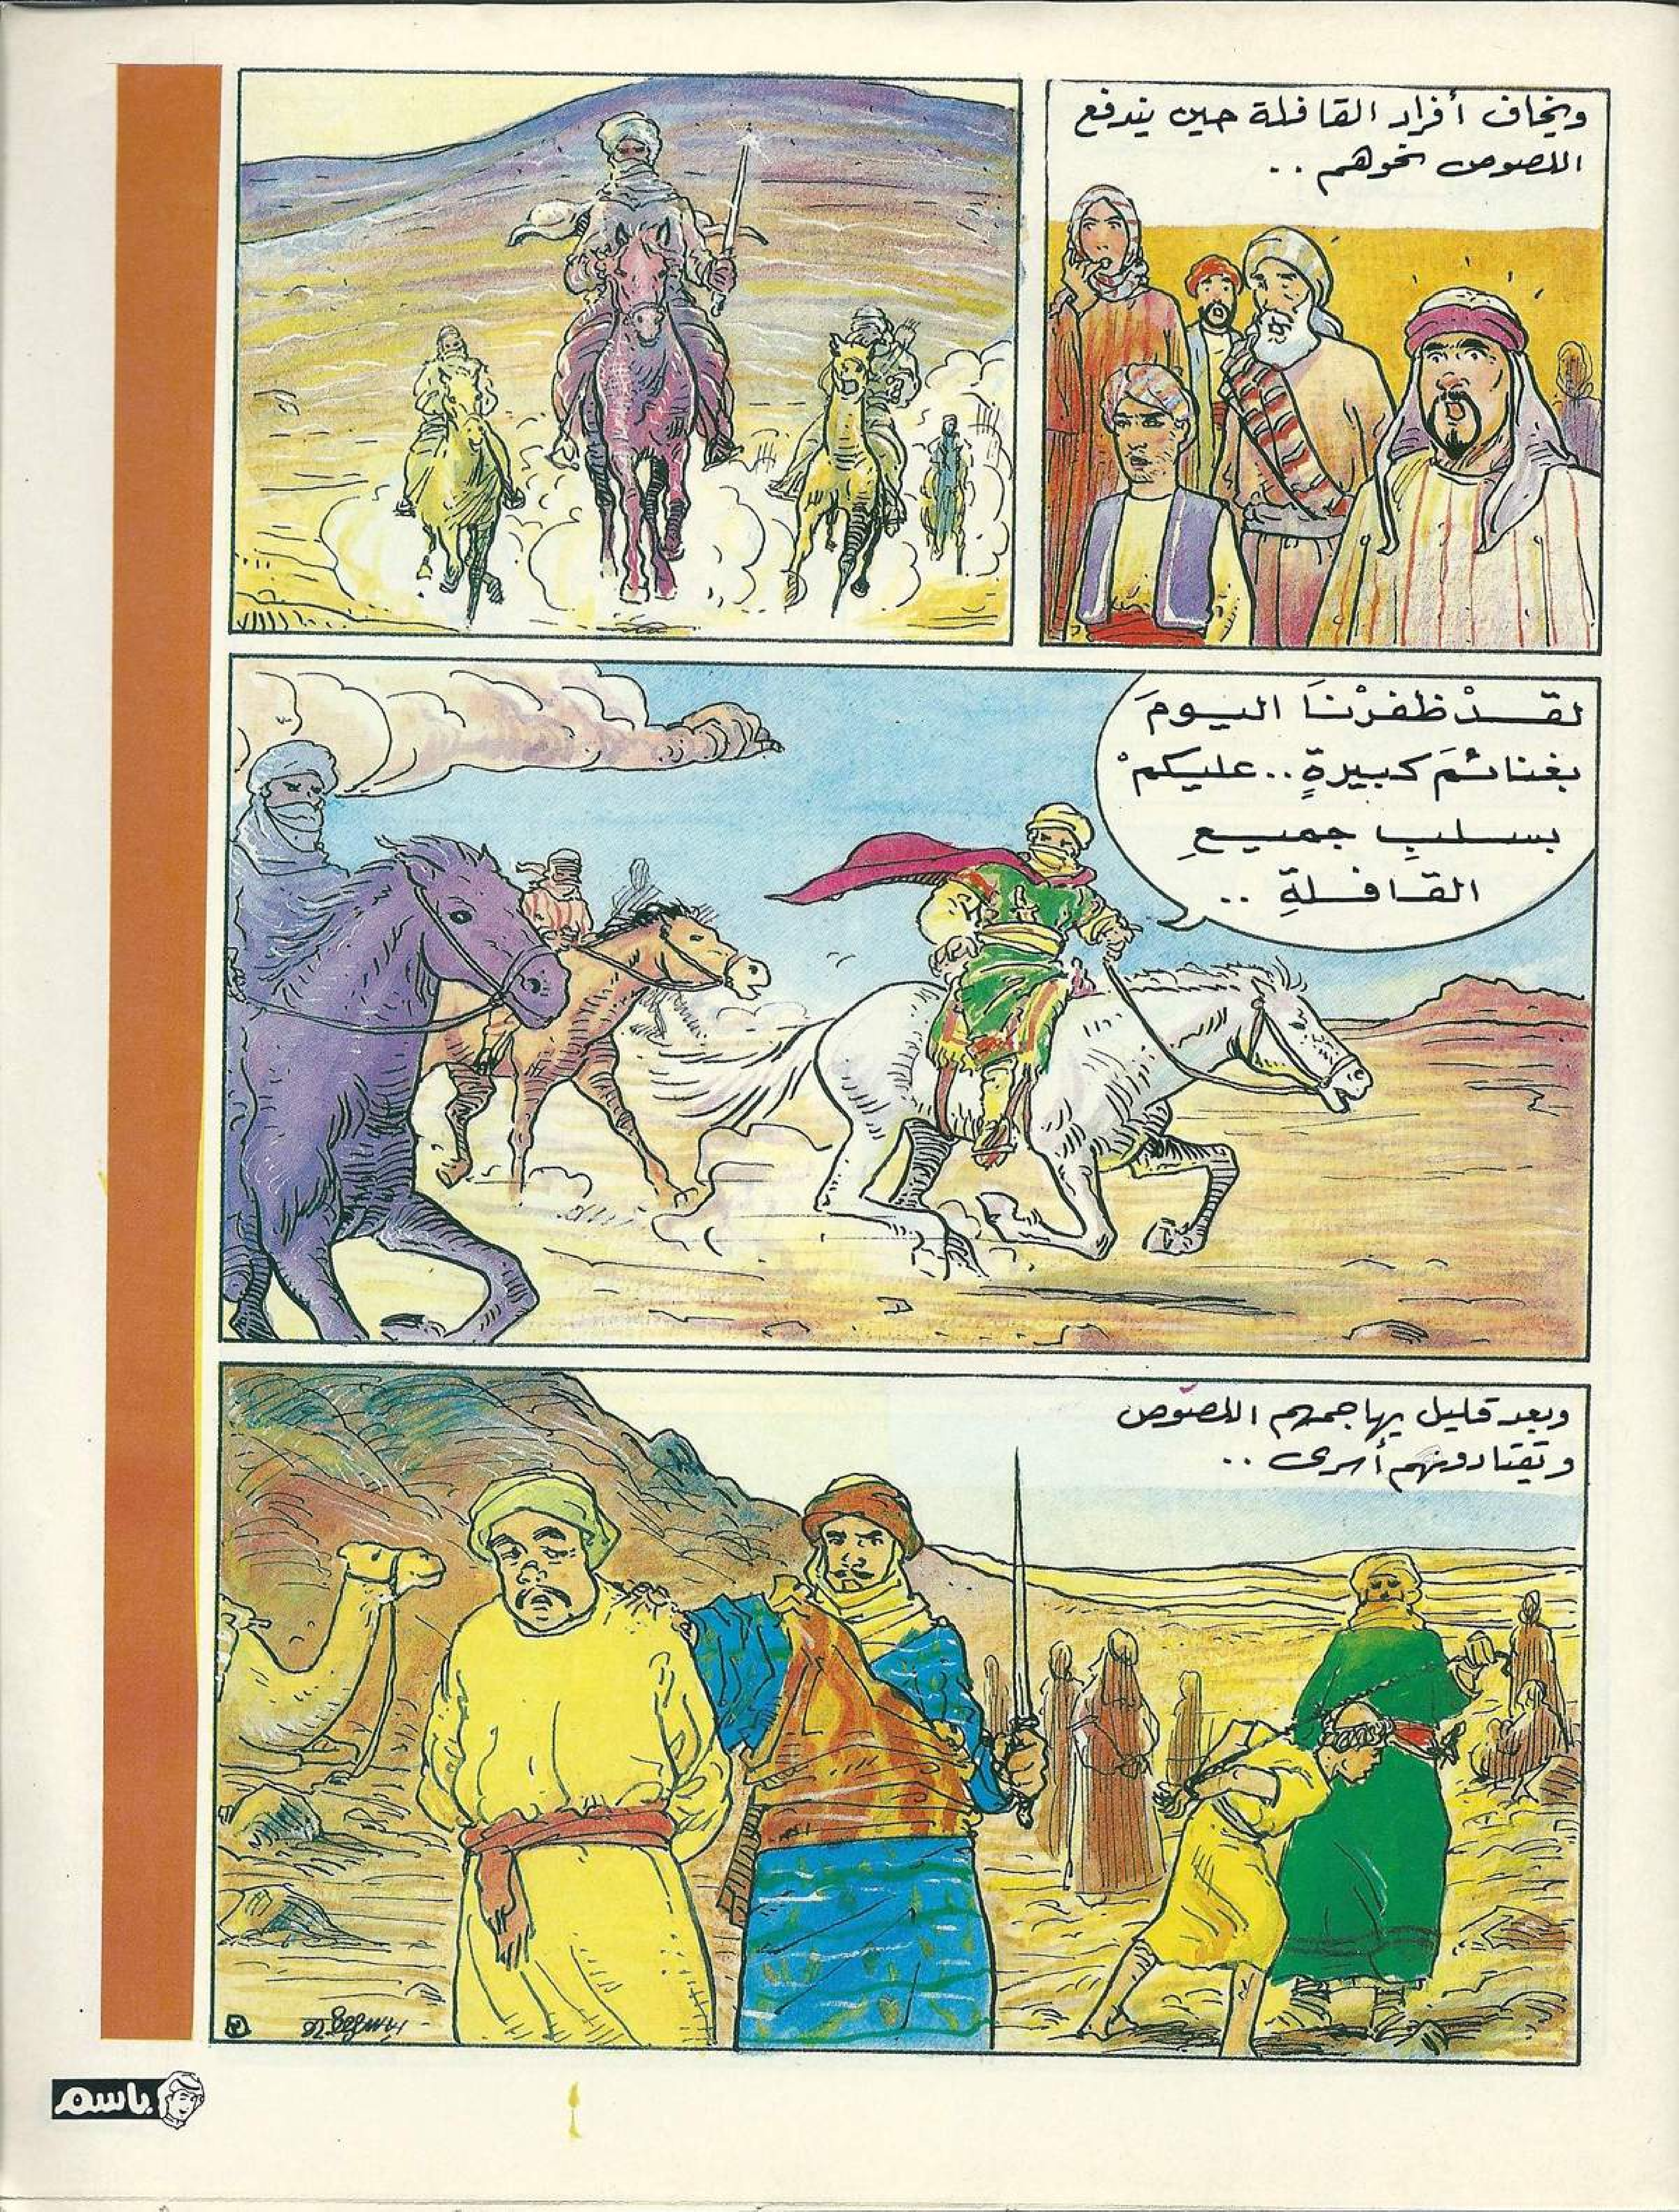 ويخاف أفراد القافلة حين يندفع
اللصوص نحوهم ..
لقَـــدْ ظفرْنَا اليومَ
بغنائمَ كبيرةٍ .. عليكمْ
بسلبِ جميعِ
القافلةِ ..
وبعد قليل يهاجمهم اللصوص
وتقتادونهم أسرى ..
باسم